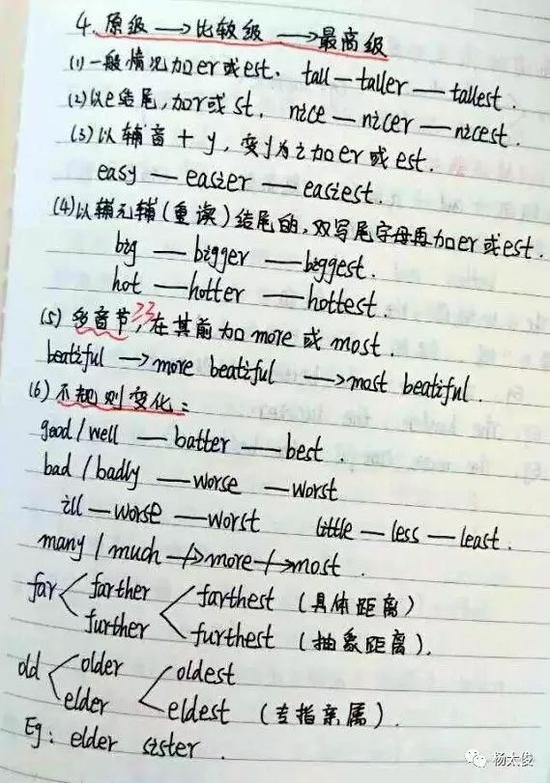 4. 原级 → 比较级 → 最高级
(1) 一般情况加er或est. tall — taller — tallest.
(2) 以e结尾,加r或st. nice — nicer — nicest.
(3) 以辅音 + y, 变y为i加er或est.
easy — easier — easiest.
(4) 以辅元辅(重读)结尾的,双写尾字母再加er或est.
big — bigger — biggest.
hot — hotter — hottest.
(5) 多音节, 在其前加 more 或 most.
beatiful → more beatiful → most beatiful.
(6) 不规则变化:
good / well — batter — best.
bad / badly — worse — worst
ill — worse — worst little — less — least.
many / much → more → most.
far farther farthest (具体距离)
further furthest (抽象距离).
old older oldest
elder eldest (专指亲属).
Eg: elder sister.
杨太俊